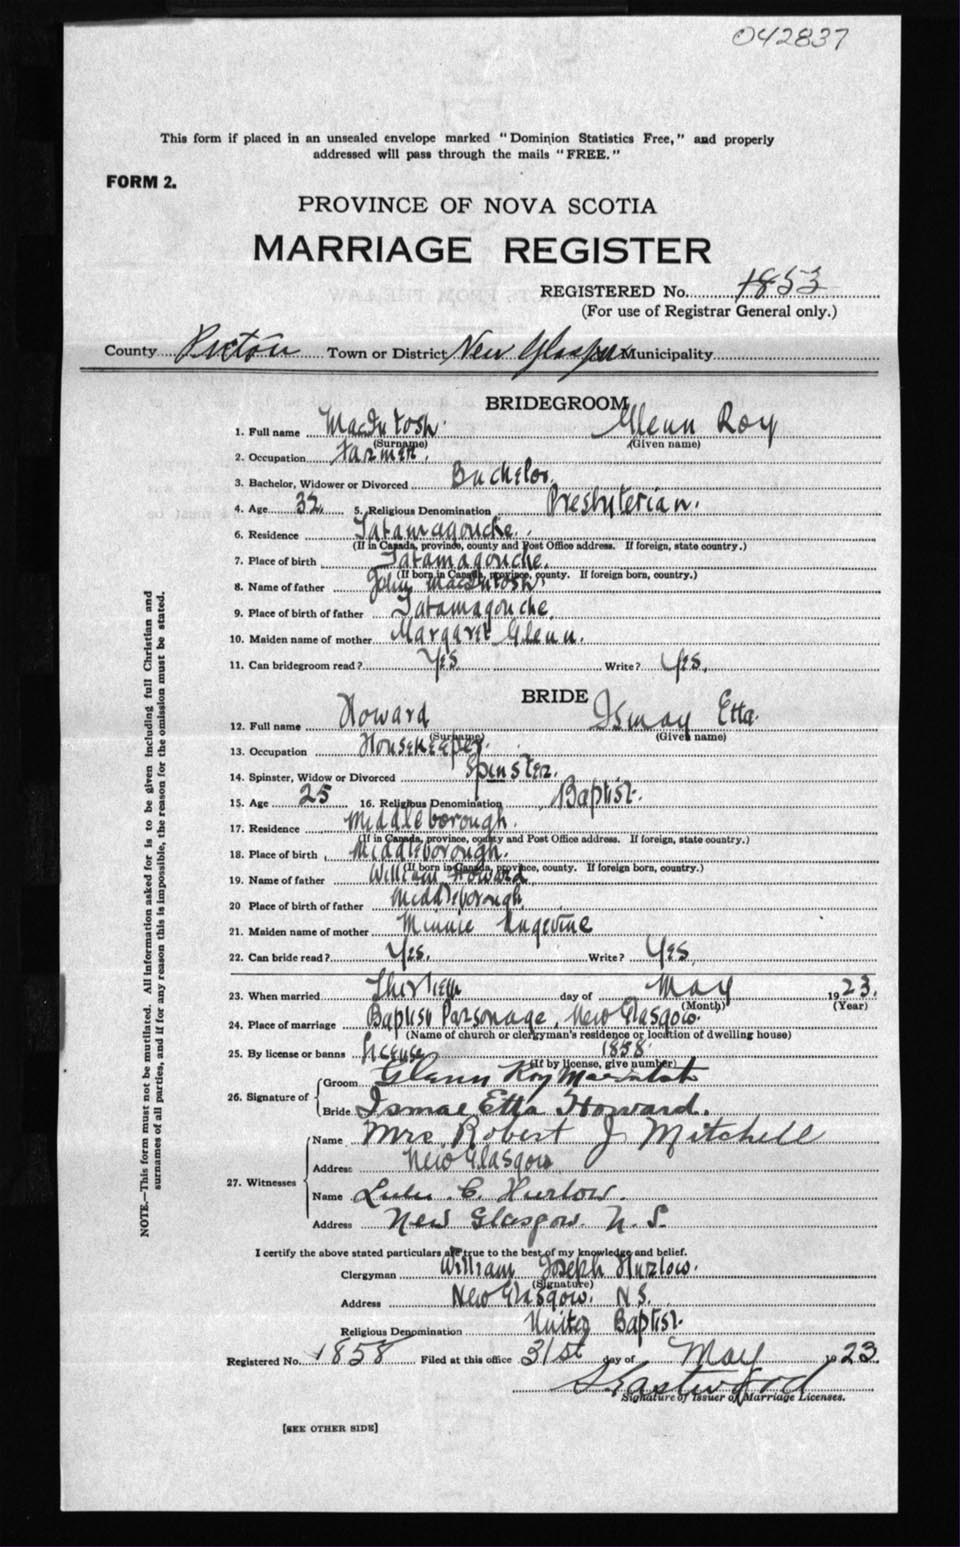 042837
This form if placed in an unsealed envelope marked "Dominion Statistics Free," and properly
addressed will pass through the mails "FREE."
FORM 2.
PROVINCE OF NOVA SCOTIA
MARRIAGE REGISTER
REGISTERED No. 1853
(For use of Registrar General only.)
County Pictou Town or District New Glasgow Municipality
BRIDEGROOM
1. Full name MacIntosh Glenn Roy
(Surname) (Given name)
2. Occupation Farmer.
3. Bachelor, Widower or Divorced Bachelor.
4. Age 32 5. Religious Denomination Presbyterian.
6. Residence Tatamagouche.
(If in Canada, province, county and Post Office address. If foreign, state country.)
7. Place of birth Tatamagouche.
(If born in Canada, province, county. If foreign born, country.)
8. Name of father John MacIntosh.
9. Place of birth of father Tatamagouche.
10. Maiden name of mother Margaret Glenn.
11. Can bridegroom read? Yes Write? Yes.
BRIDE
12. Full name Howard Ismay Etta.
(Surname) (Given name)
13. Occupation Housekeeper.
14. Spinster, Widow or Divorced Spinster.
15. Age 25 16. Religious Denomination Baptist.
17. Residence Middleborough.
(If in Canada, province, county and Post Office address. If foreign, state country.)
18. Place of birth Middleborough.
(If born in Canada, province, county. If foreign born, country.)
19. Name of father William Howard
20 Place of birth of father Middleborough
21. Maiden name of mother Minnie Angevine
22. Can bride read? Yes. Write? Yes.
23. When married Thirtieth day of May 1923.
(Month) (Year)
24. Place of marriage Baptist Parsonage, New Glasgow.
(Name of church or clergyman's residence or location of dwelling house)
25. By license or banns License 1858
(If by license, give number)
26. Signature of
Groom Glenn Roy MacIntosh
Bride Ismae Etta Howard.
27. Witnesses
Name Mrs. Robert J Mitchell
Address New Glasgow
Name Lulu C. Hurlow.
Address New Glasgow. N. S.
I certify the above stated particulars are true to the best of my knowledge and belief.
Clergyman William Joseph Hurlow.
(Signature)
Address New Glasgow. N S.
Religious Denomination United Baptist.
Registered No. 1858 Filed at this office 31st day of May 1923.
S Eastwood
Signature of Issuer of Marriage Licenses.
[SEE OTHER SIDE]
NOTE.—This form must not be mutilated. All information asked for is to be given including full Christian and
surnames of all parties, and if for any reason this is impossible, the reason for the omission must be stated.